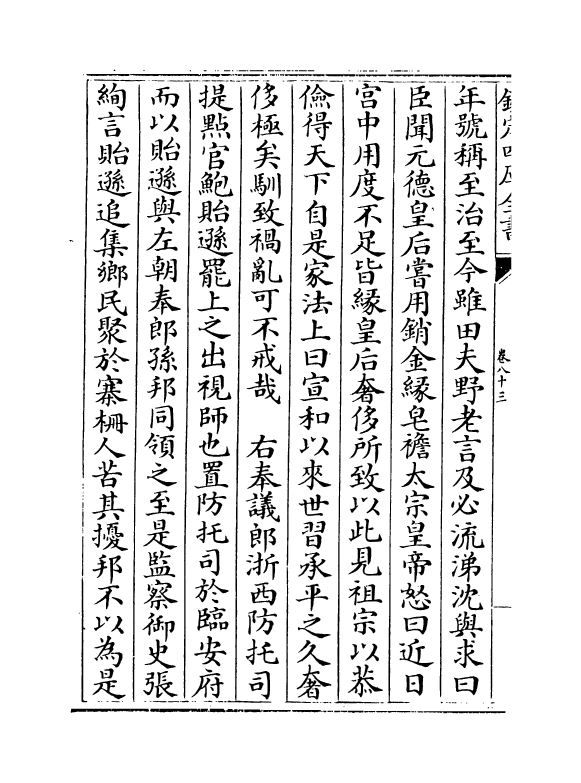 欽定四庫全書
卷八十三
年號稱至治至今雖田夫野老言及必流涕沈與求曰
臣聞元德皇后嘗用銷金緣皂襜太宗皇帝怒曰近日
宫中用度不足皆緣皇后奢侈所致以此見祖宗以恭
儉得天下自是家法上曰宣和以來世習承平之久奢
侈極矣馴致禍亂可不戒哉　右奉議郎浙西防托司
提㸃官鮑貽遜罷上之出視師也置防托司於臨安府
而以貽遜與左朝奉郎孫邦同領之至是監察御史張
絢言貽遜追集鄉民聚於寨柵人苦其擾邦不以為是